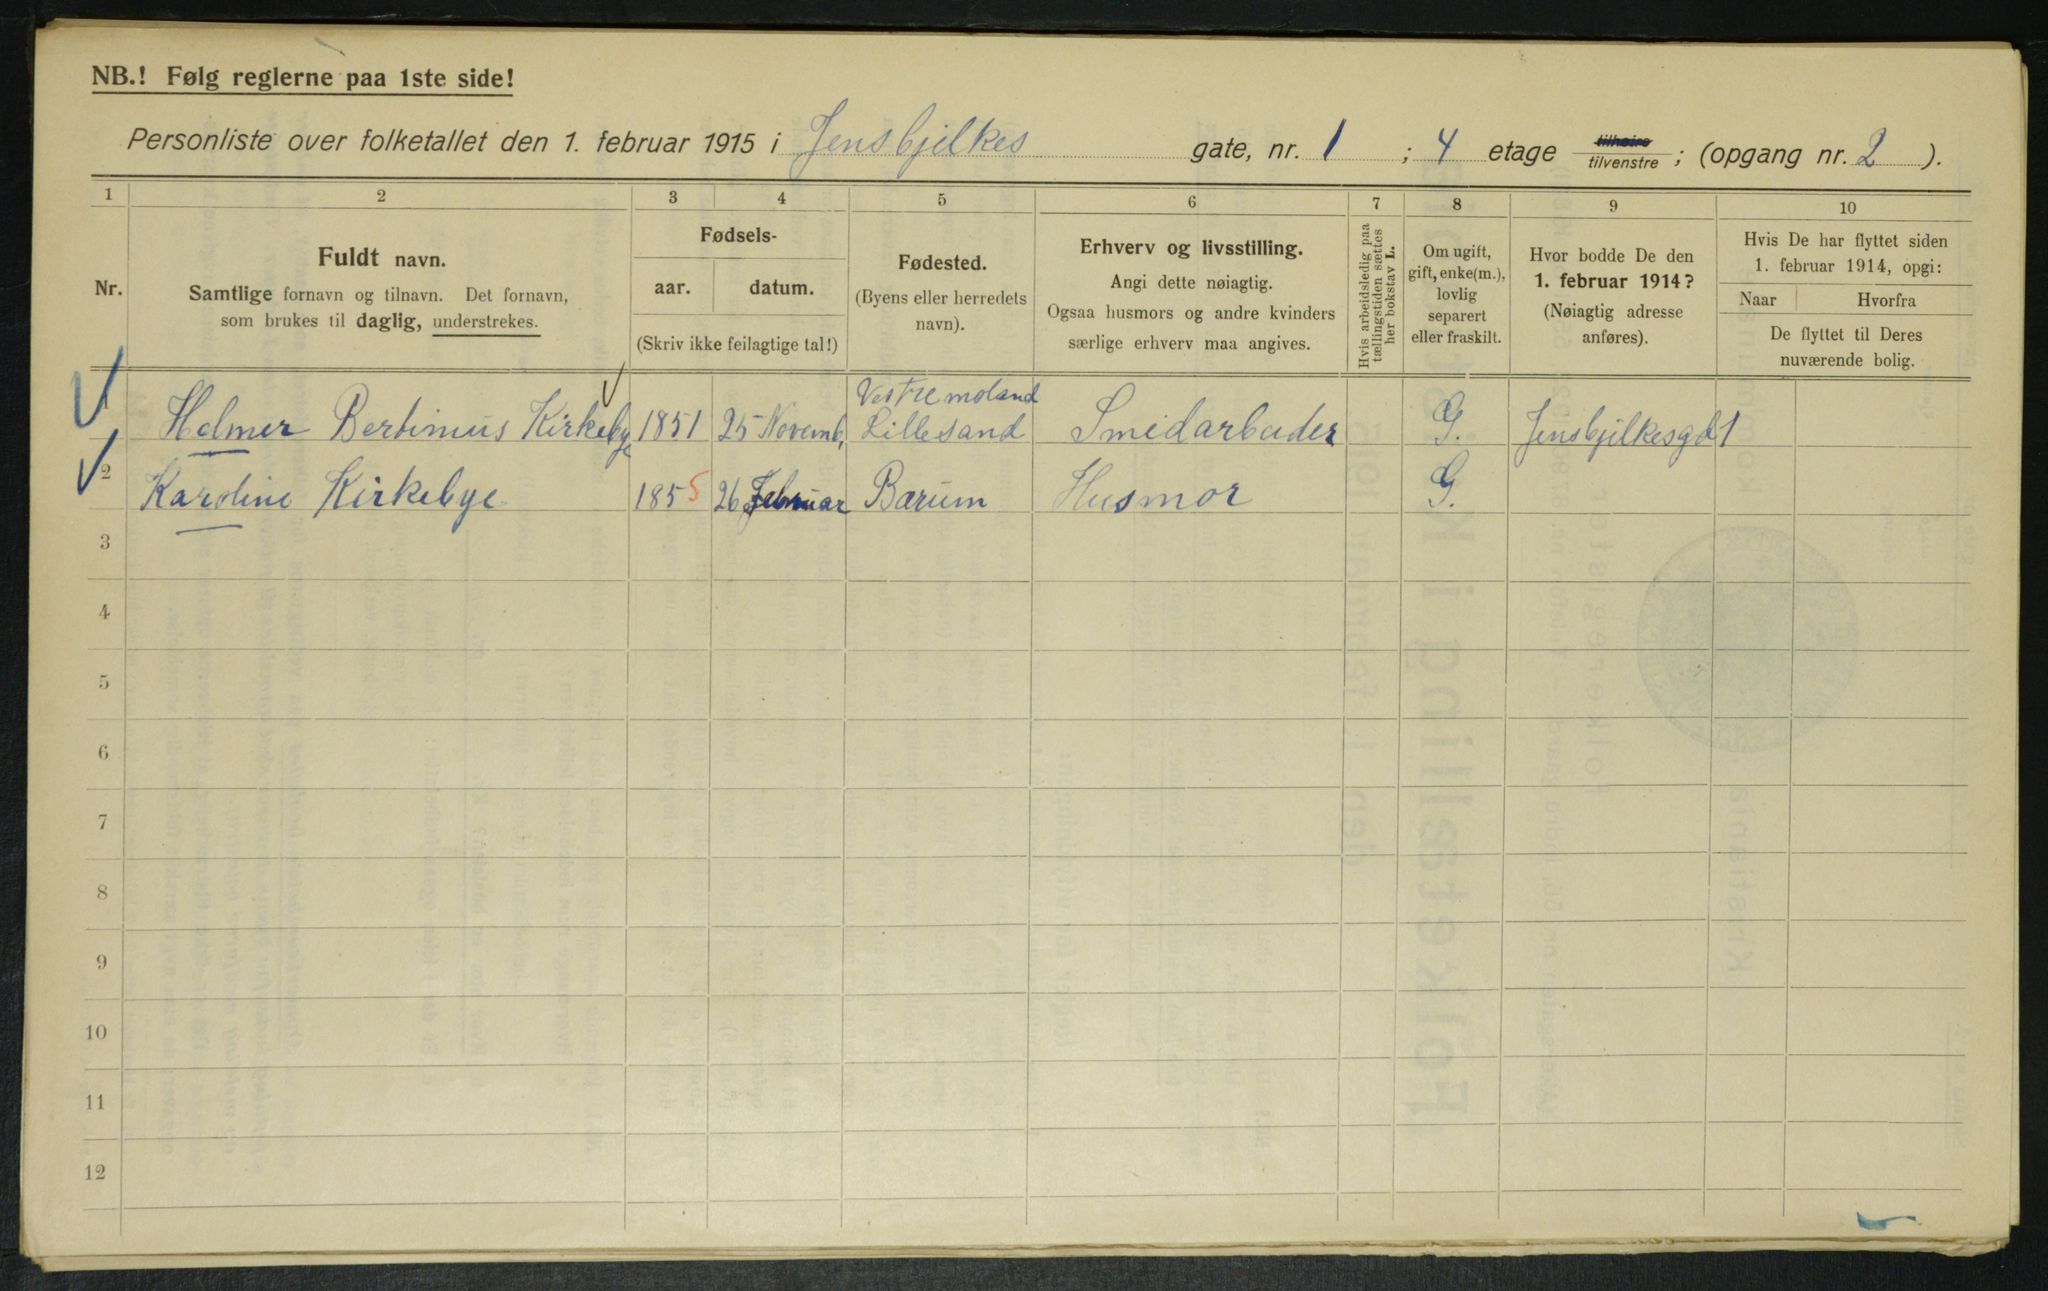 NB.! Følg reglerne paa 1ste side!
Personliste over folketallet den 1. februar 1915 i Jensbjelkes gate, nr. 1 ; 4 etage tilhøire tilvenstre ; (opgang nr. 2 ).
1 2 3 4 5 6 7 8 9 10
Nr.
Fuldt navn.
Samtlige fornavn og tilnavn. Det fornavn,
som brukes til daglig, understrekes.
Fødsels-
aar. datum.
(Skriv ikke feilagtige tal!)
Fødested.
(Byens eller herredets
navn).
Erhverv og livsstilling.
Angi dette nøiagtig.
Ogsaa husmors og andre kvinders
særlige erhverv maa angives.
Hvis arbeidsledig paa
tællingstiden sættes
her bokstav L.
Om ugift,
gift, enke(m.),
lovlig
separert
eller fraskilt.
Hvor bodde De den
1. februar 1914?
(Nøiagtig adresse
anføres).
Hvis De har flyttet siden
1. februar 1914, opgi:
Naar Hvorfra
De flyttet til Deres
nuværende bolig.
Vestre moland
1 Holmer Bertinius Kirkebye 1851 25 Novemb, Lillesand Smidarbeider G. Jensbjelkesgd 1
2 Karoline Kirkebye 1855 26 Februar Bærum Husmor G.
3
4
5
6
7
8
9
10
11
12